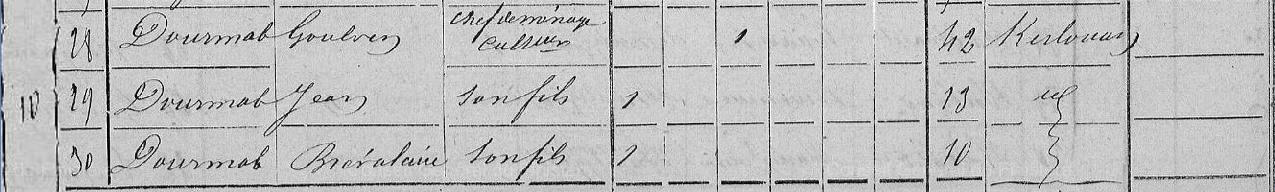 28 Dourmab Goulven chef de ménage cultiver 1 42 Kerlouan
10 29 Dourmab Jean son fils 1 13 id
30 Dourmab Brévalaire son fils 1 10